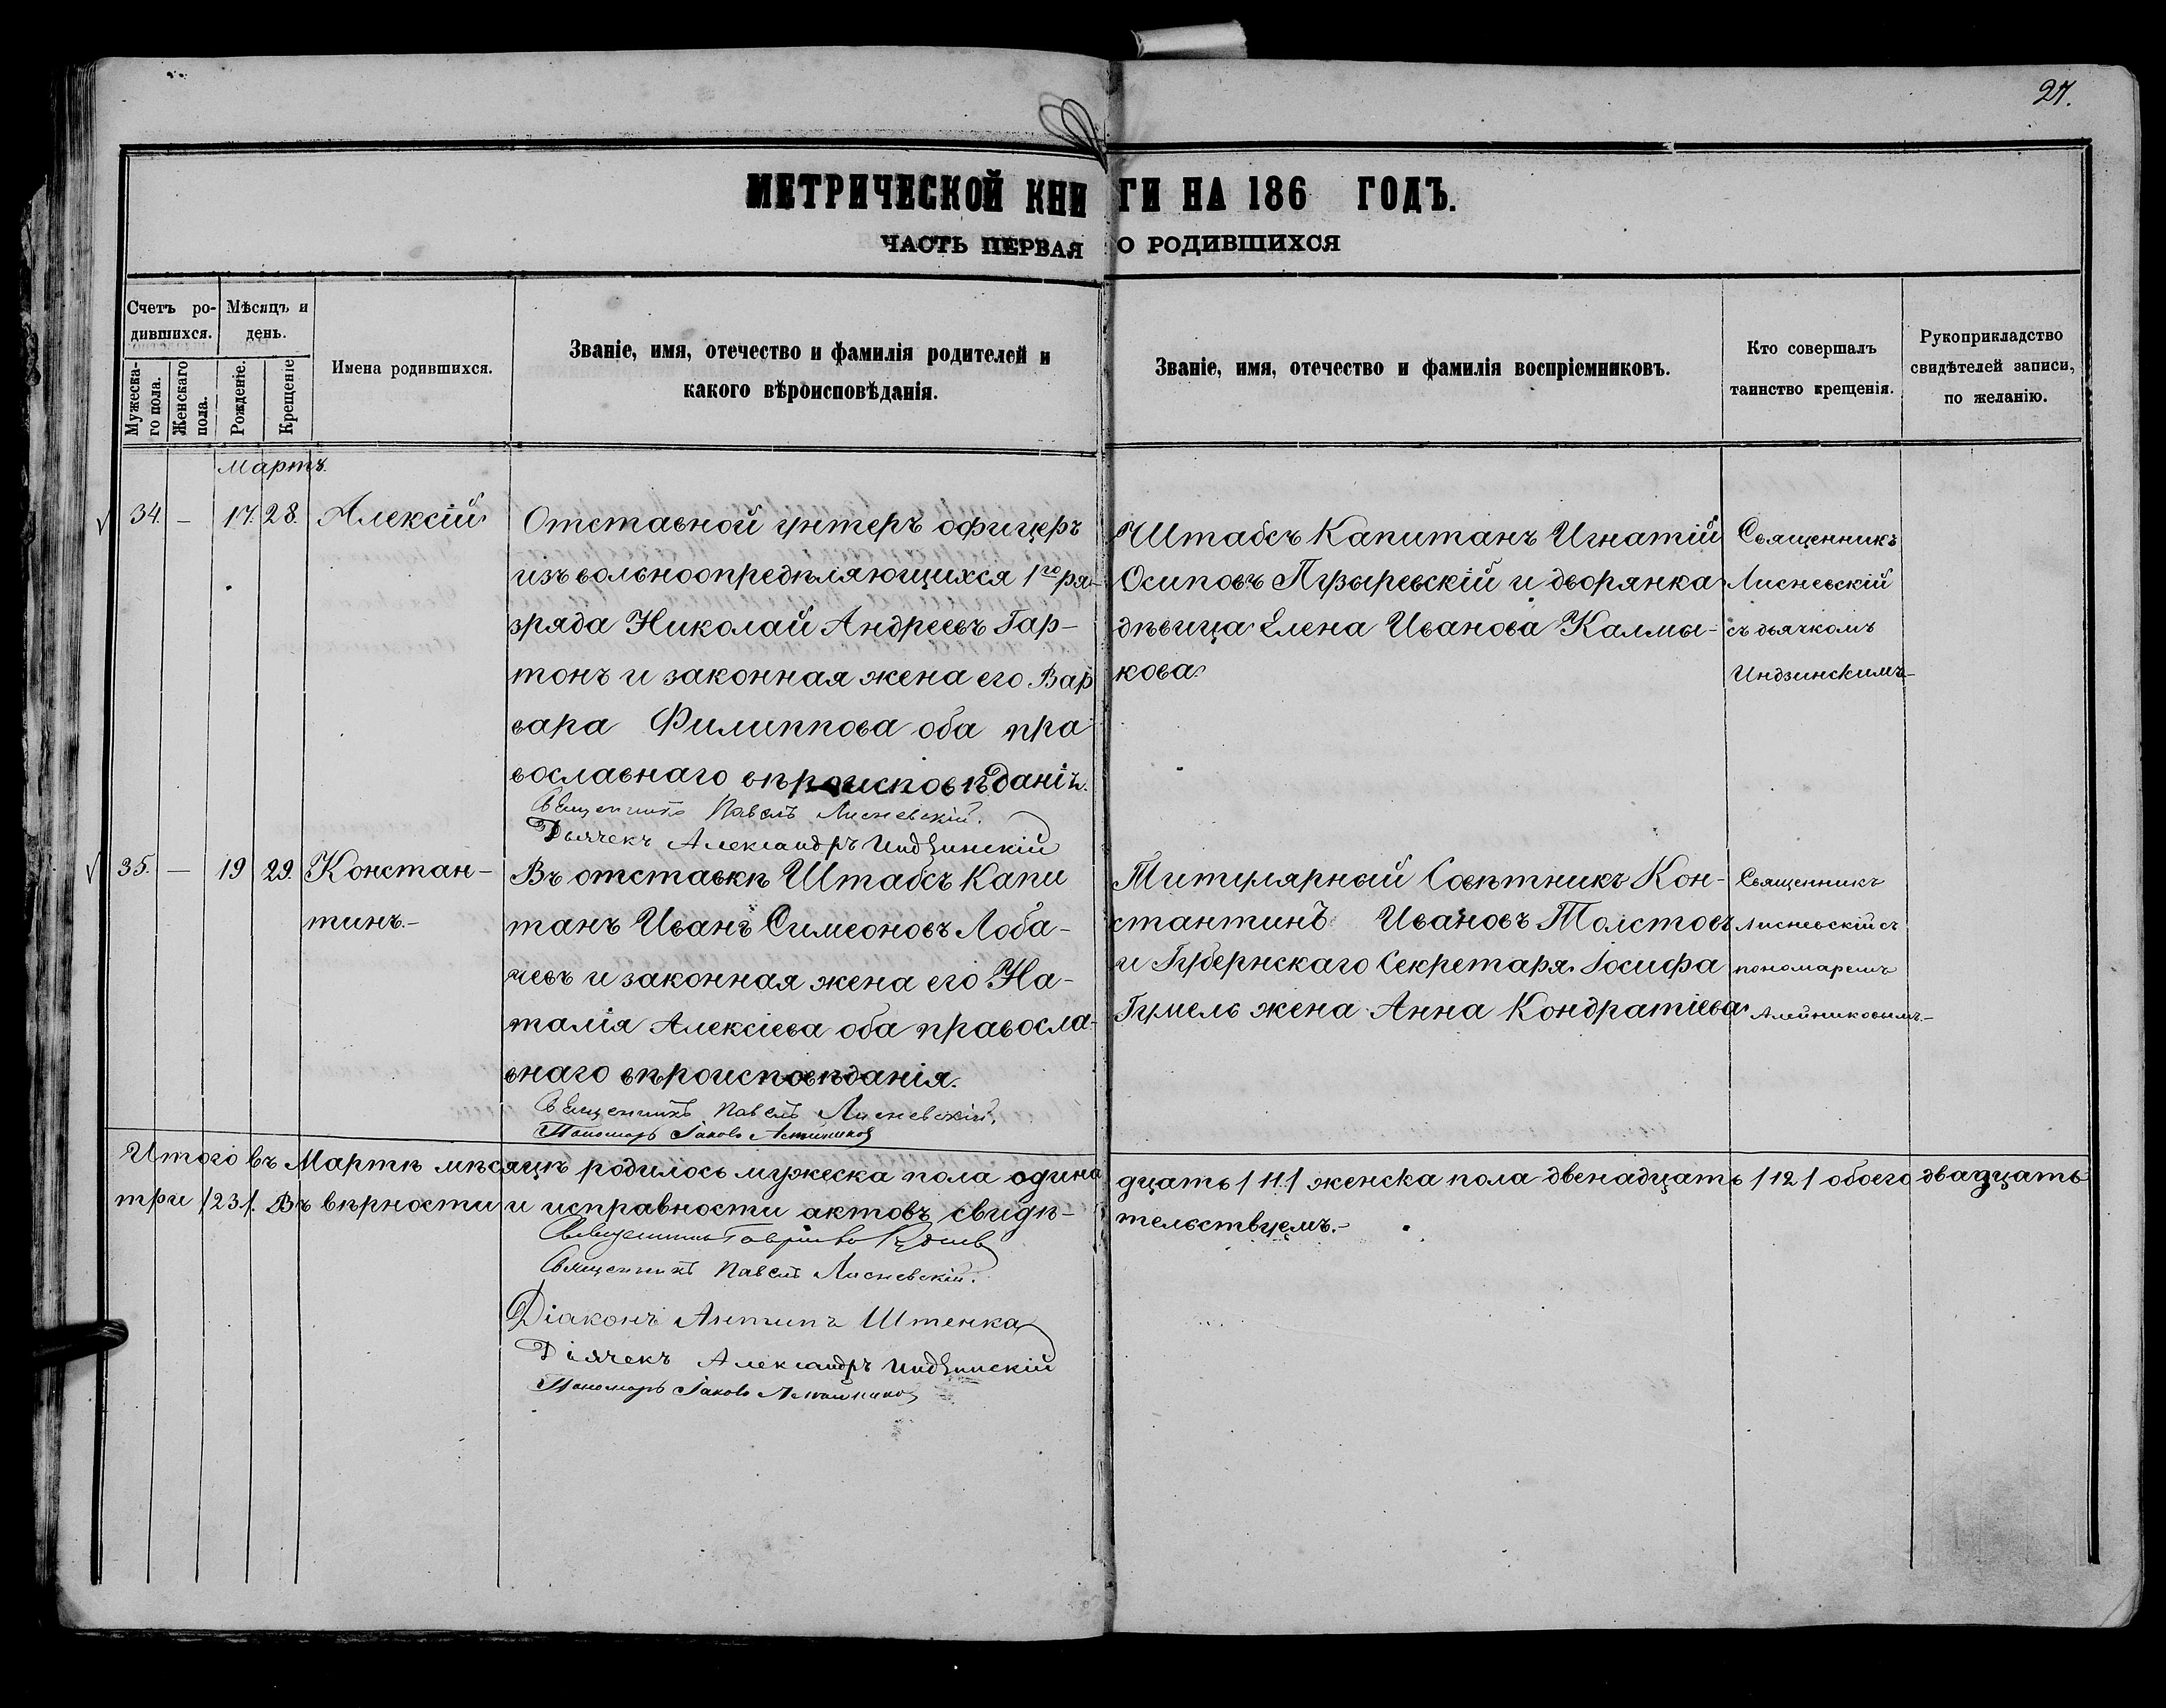 27.
МЕТРИЧЕСКОЙ КНИГИ НА 186 ГОДЪ.
ЧАСТЬ ПЕРВАЯ О РОДИВШИХСЯ
Счетъ ро-
дившихся.
Мужеска-
го пола.
Женскаго
пола.
Мѣсяцъ и
день.
Рожденіе.
Крещеніе
Имена родившихся.
Званіе, имя, отечество и фамилія родителей и
какого вѣроисповѣданія.
Званіе, имя, отечество и фамилія воспріемниковъ.
Кто совершалъ
таинство крещенія.
Рукоприкладство
свидѣтелей записи,
по желанію.
Мартъ.
34. — 17. 28. Алексій
Отставной унтеръ офицеръ
изъ вольноопредѣляющихся 1го ра-
зряда Николай Андреевъ Гар-
тонъ и законная жена его Вар
вара Филиппова оба пра
вославнаго вѣроисповѣданія.
Священникъ Павелъ Лисневскій.
Дьячекъ Александръ Индзинскій
Штабсъ Капитанъ Игнатій
Осиповъ Пузыревскій и дворянка
дѣвица Елена Иванова Калмы-
кова
Священникъ
Лисневскій
съ дьячкомъ
Индзинскимъ-
35. — 19 29. Констан-
тинъ.-
Въ отставкѣ Штабсъ Капи
танъ Иванъ Симеоновъ Лоба-
чевъ и законная жена его На-
талія Алексіева оба правосла-
внаго вѣроисповѣданія.
Священникъ Павелъ Лисневскій.
Пономарь Іаковъ
Титулярный Совѣтникъ Кон-
стантинъ Ивановъ Толстовъ
и Губернскаго Секретаря Іосифа
Гумель жена Анна Кондратіева
Священникъ
Лисневскій съ
пономаремъ
Алейниковымъ.-
Итого въ Мартѣ мѣсяцѣ родилось мужеска пола одина
дцать /11/ женска пола двенадцать /12/ обоего двадцать
три /23/. Въ вѣрности и исправности актовъ свидѣ-
тельствуемъ.-
Священникъ
Священникъ Павелъ Лисневскій.
Діаконъ Антипъ Штенка
Діячекъ Александръ Индзинскій
Пономарь Іаковъ